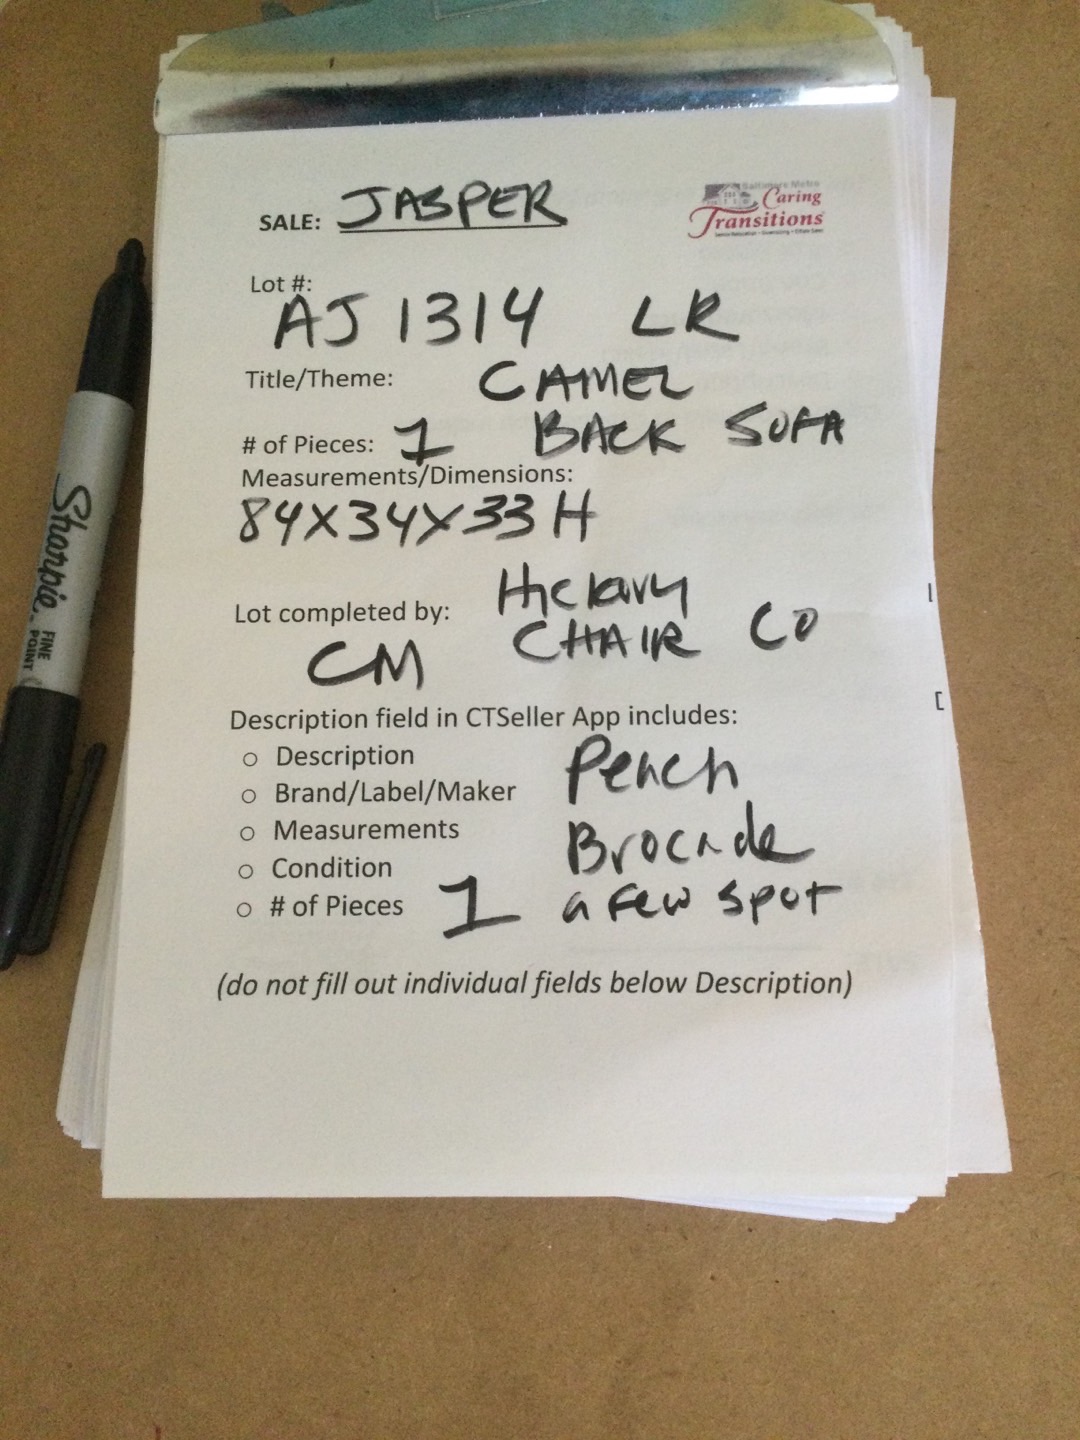 SALE: JASPER
Baltimore Metro
Caring
Transitions
Lot #:
AJ 1314 LR
Title/Theme: CAMEL
# of Pieces: 1 BACK SOFA
Measurements/Dimensions:
84X34X33 H
Hickory
Lot completed by: CHAIR CO
CM
Description field in CTSeller App includes:
Description Peach
Brand/Label/Maker
Measurements Brocade
Condition
# of Pieces 1 a few spot
(do not fill out individual fields below Description)
Sharpie
FINE
POINT